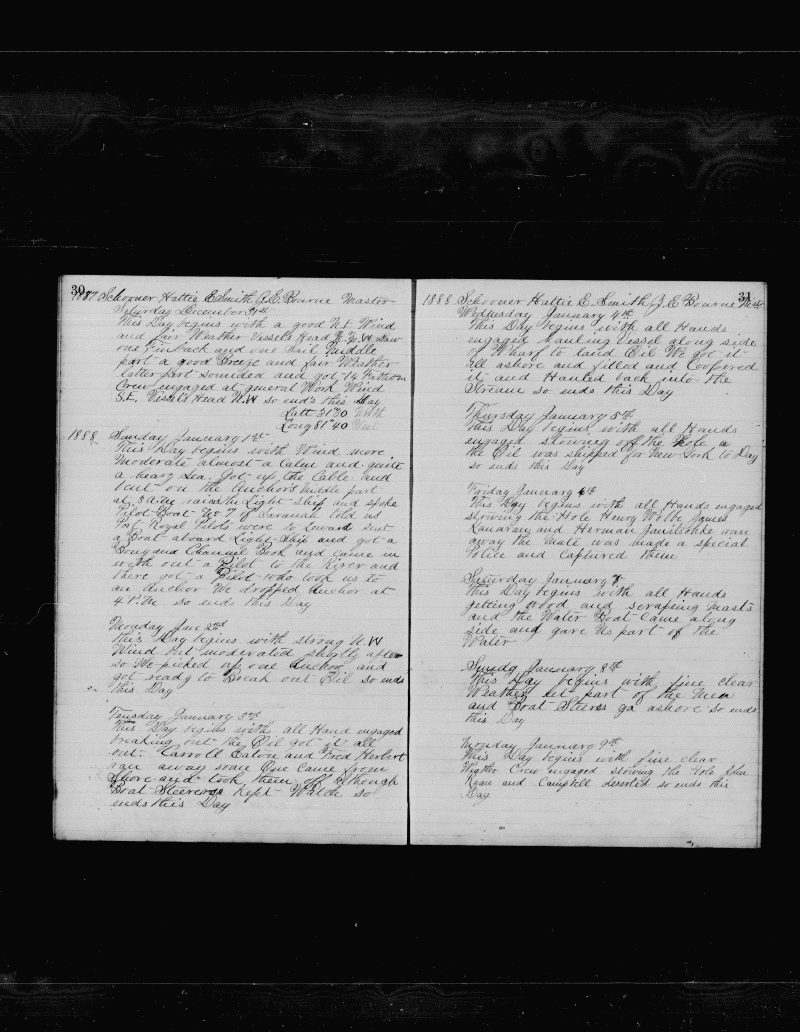 30
1887 Schooner Hattie E Smith J. E. Bourne Master
Saturday December 31st
this Day begins with a good N.E. Wind
and fair Weather Vessels Head N.N.W. Saw
one Finback and one Sail Middle
part a good Breeze and fair Weather
latter part sounded and got 14 Fathom
Crew engaged at general Work Wind
S.E. Vessels Head N.W so ends this day
Latt 31°30 North
Long 81°40 West
1888 Sunday January 1st
This Day begins with Wind more
Moderate almost a Calm and quite
a heavy Sea. Got up the Cable and
bent on the Anchors Middle part
at 3 A.M. raised the Light Ship and spoke
Pilot Boat No 7 of Savanah told us
Port Royal Pilots were to leward sent
a Boat aboard Light Ship and got a
and Channel Book and came in
with out a Pilot to the River and
there got a Pilot who took us to
an Anchor We dropped Anchor at
4 P.M. so ends this Day
Monday Jan 2nd
this Day begins with strong N.W
Wind but moderated shortly after
so We picked up one Anchor and
got ready to Break out Oil so ends
this Day
Teusday January 3rd
this Day begins with all Hand engaged
breaking out the Oil got it all
out. Carroll Eaton and Fred Herbert
ran away some One came from
Shore and took them off although
Boat Steerers kept Watch so
ends this Day
31
1888 Schooner Hattie E. Smith J. E Bourne Mast
Wednesday January 4th
This Day begins with all Hands
engaged hauling Vessel along side
of Wharf to land Oil We got it
all ashore and filled and Coopered
it and Hauled back into the
Stream so ends this Day
Thursday January 5th
this Day begins with all Hands
engaged stowing off the Hole a
the Oil was shipped for New York to Day
so ends this Day
Friday January 6th
This Day begins with all Hands engaged
stowing the Hole Henry James
and Herman ran
away the Mate was made a special
Police and Captured them
Saturday January 7
this Day begins with all Hands
getting Wood and scraping Masts
and the Water Boat Came along
side and gave us part of the
Water
Sunday January 8th
This Day begins with fine clear
Weather let part of the Men
and Boat Steerers go ashore so ends
this Day
Monday January 9th
this Day begins with fine clear
Weather Crew engaged stowing the Hole John
Regan and Campbell deserted so ends this
Day